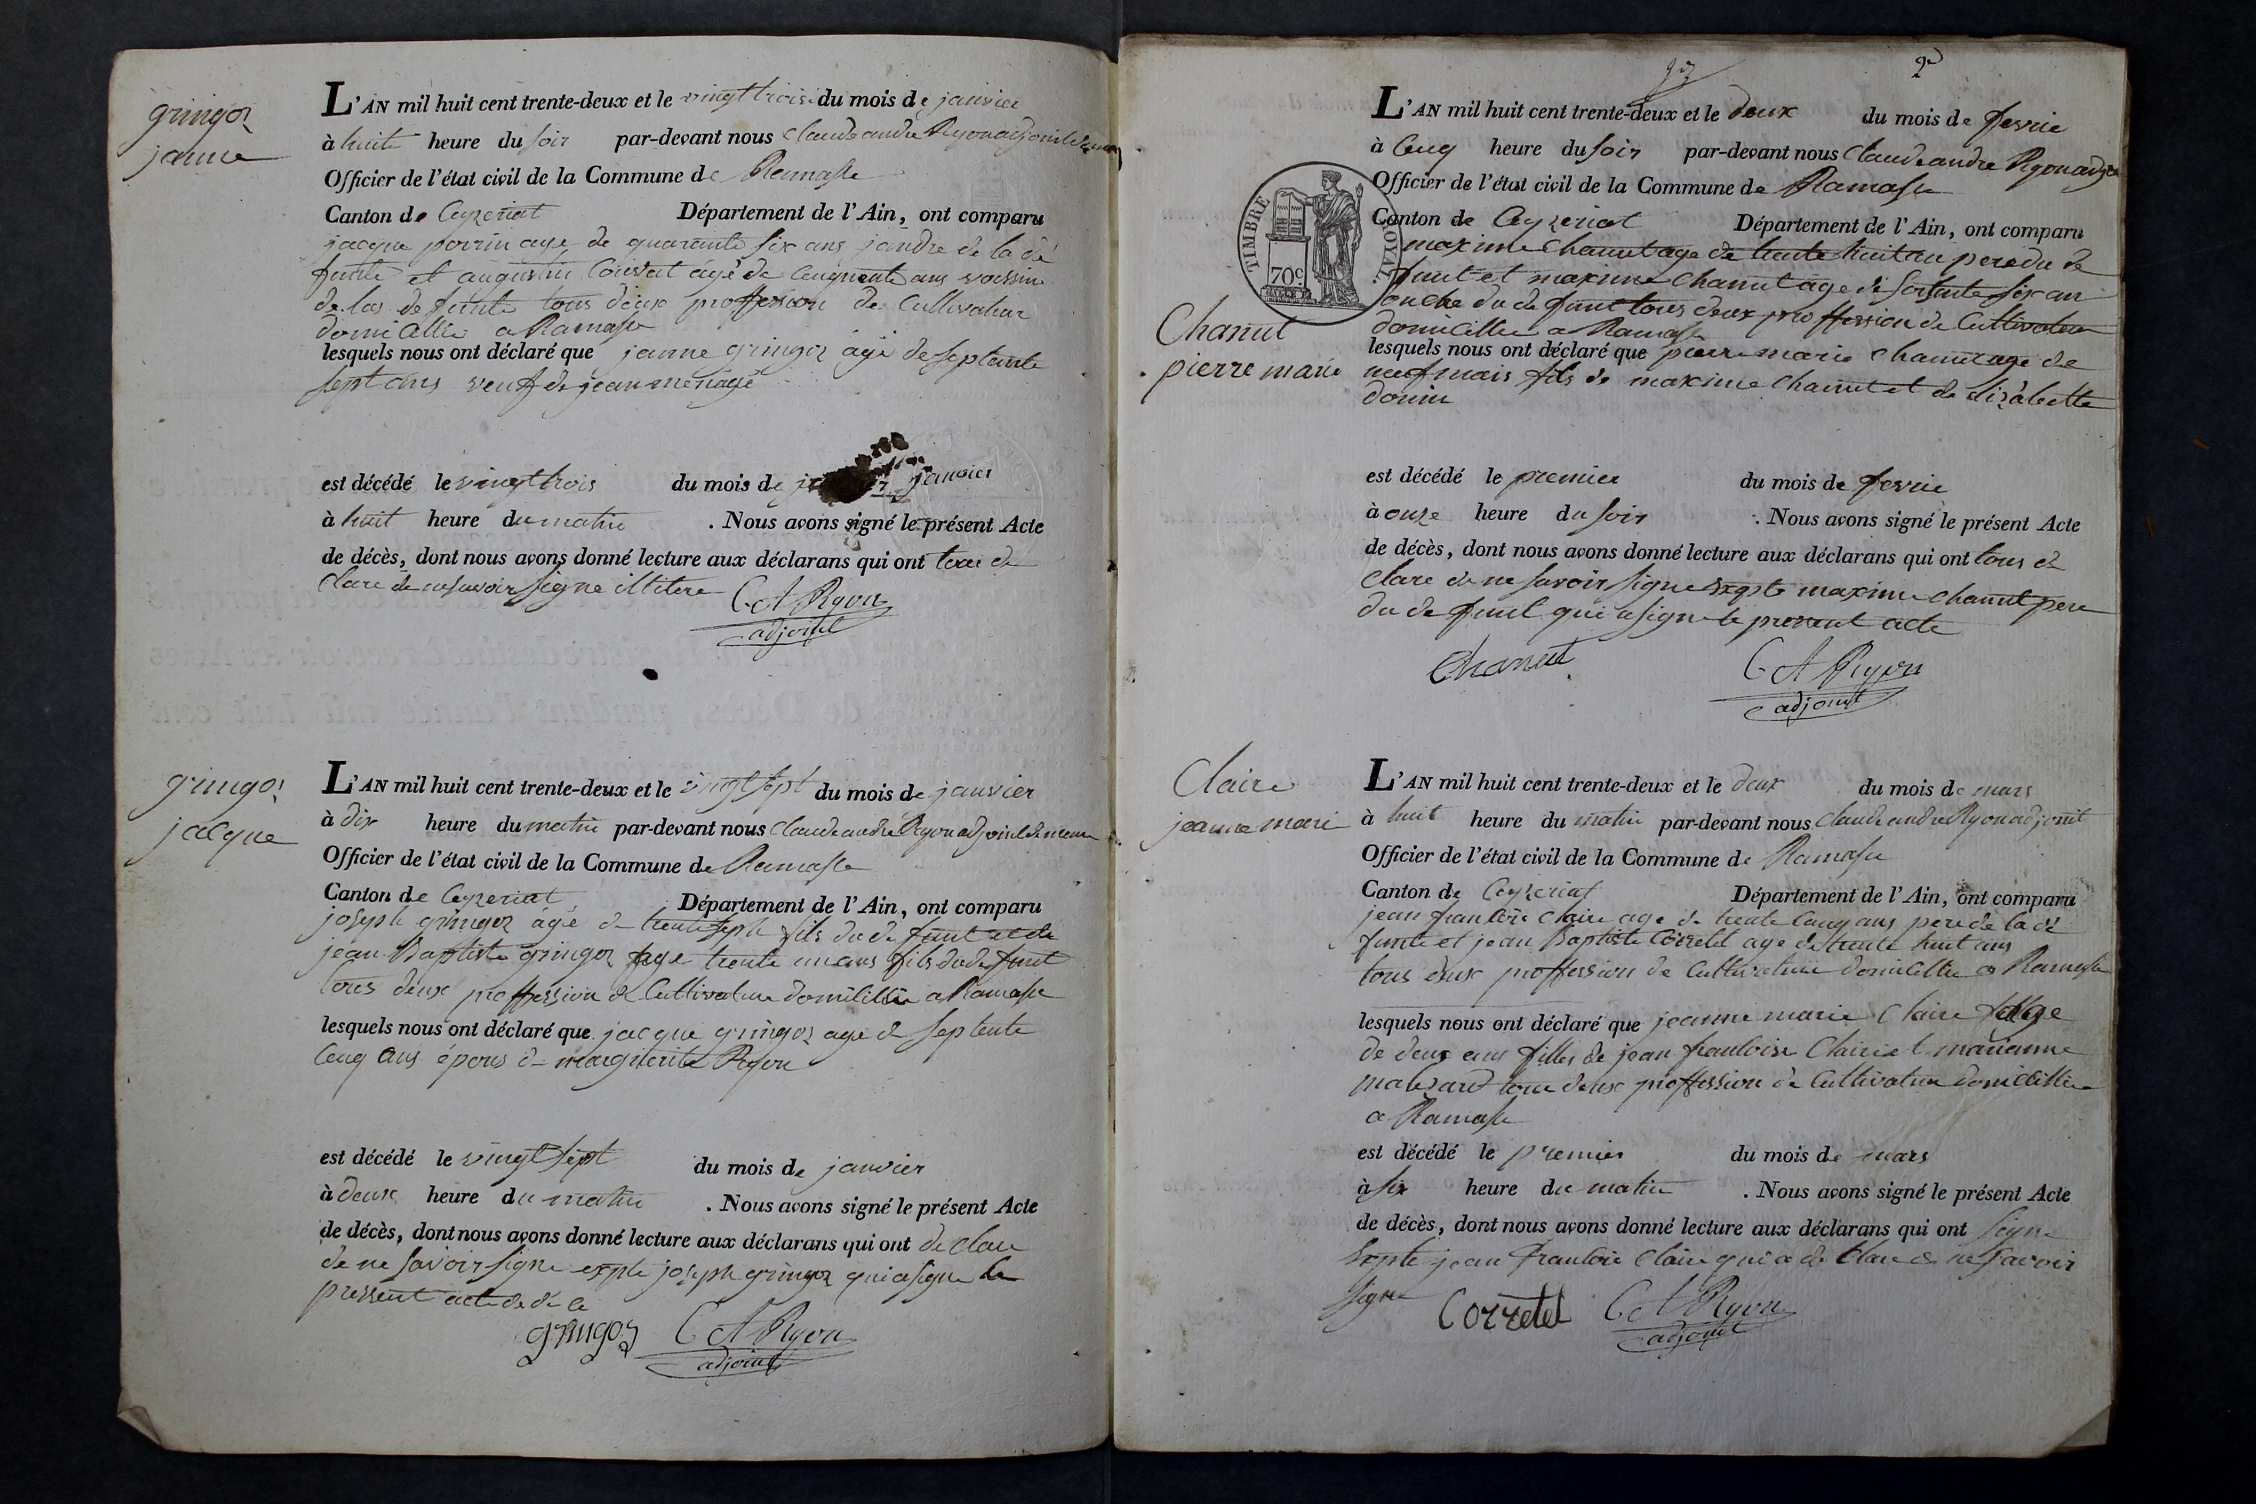 gringoz
janne
L'AN mil huit cent trente-deux et le vingt trois du mois de janvier
à huit heure du soir par-devant nous Claude andre Ryon adjoint
Officier de l'état civil de la Commune de Ramasse
Canton de Ceyzeriat Département de l'Ain, ont comparu
jacque perrin age de quarante six ans jandre de la dé
funte et augustin Convat agé de cinquente ans voissin
de la defunte tous deux proffession de Cultivateur
domicillie a Ramasse
lesquels nous ont déclaré que janne gringoz âgé de septante
sept ans veuf de jean menage
est décédé le vingt trois du mois de janvier
à huit heure du matin . Nous avons signé le présent Acte
de décès, dont nous avons donné lecture aux déclarans qui ont tous dé
clare de ne savoir signe illitere
C A Ryon
adjoint
gringoz
jacque
L'AN mil huit cent trente-deux et le vingt sept du mois de janvier
à dix heure du matin par-devant nous Claude andre Ryon adjoint
Officier de l'état civil de la Commune de Ramasse
Canton de Ceyzeriat Département de l'Ain, ont comparu
joseph gringoz âgé de trente sept fils du defunt et de
jean Baptiste gringoz age trente un ans fils du defunt
tous deux proffession de Cultivateur domicillie a Ramasse
lesquels nous ont déclaré que jacque gringoz age de septente
Cenq ans épous de marguerite Ryon
est décédé le vingt sept du mois de janvier
à deux heure du matin . Nous avons signé le présent Acte
de décès, dont nous avons donné lecture aux déclarans qui ont de clare
de ne savoir signe exple joseph gringoz qui a signe le
pressent acte de dé ce
gringoz C A Ryon
adjoint
2e
L'AN mil huit cent trente-deux et le deux du mois de fevrie
à Cenq heure du soir par-devant nous Claude andre Ryon
Officier de l'état civil de la Commune de Ramasse
Canton de Ceyzeriat Département de l'Ain, ont comparu
TIMBRE ROYAL.
70c
maxime Chanut age de trente huit an pere du de
funt et maxime Chanut age de soisente six an
oncle du defunt tous deux proffession de Cultivateur
domicillie a Ramasse
Chanut
pierre marie
lesquels nous ont déclaré que pierre marie Chanut age de
neuf mais fils de maxime Chanut et de elizabette
donin
est décédé le premier du mois de fevrie
à onze heure du soir . Nous avons signé le présent Acte
de décès, dont nous avons donné lecture aux déclarans qui ont tous dé
clare de ne savoir signe sexpte maxime Chanut pere
du de funt qui a signe le pressent acte
Chanut C A Ryon
adjoint
Claire
jeanne marie
L'AN mil huit cent trente-deux et le deux du mois de mars
à huit heure du matin par-devant nous Claude andre Ryon adjoint
Officier de l'état civil de la Commune de Ramasse
Canton de Ceyzeriat Département de l'Ain, ont comparu
jean francoise Claire age de trente Cenq ans pere de la dé
funte et jean Baptiste Corretel age de trente huit ans
tous deux proffession de Cultivateur domicillie a Ramasse
lesquels nous ont déclaré que jeanne marie Claire age
de deux ans filles de jean francoise Claire et marianne
mazard tous deux proffession de Cultivateur domicillie
a Ramasse
est décédé le premier du mois de mars
à six heure du matin . Nous avons signé le présent Acte
de décès, dont nous avons donné lecture aux déclarans qui ont signe
sexpte jean francoise Claire qui a de Clare de ne savoir
signe
Corretel C A Ryon
adjoint